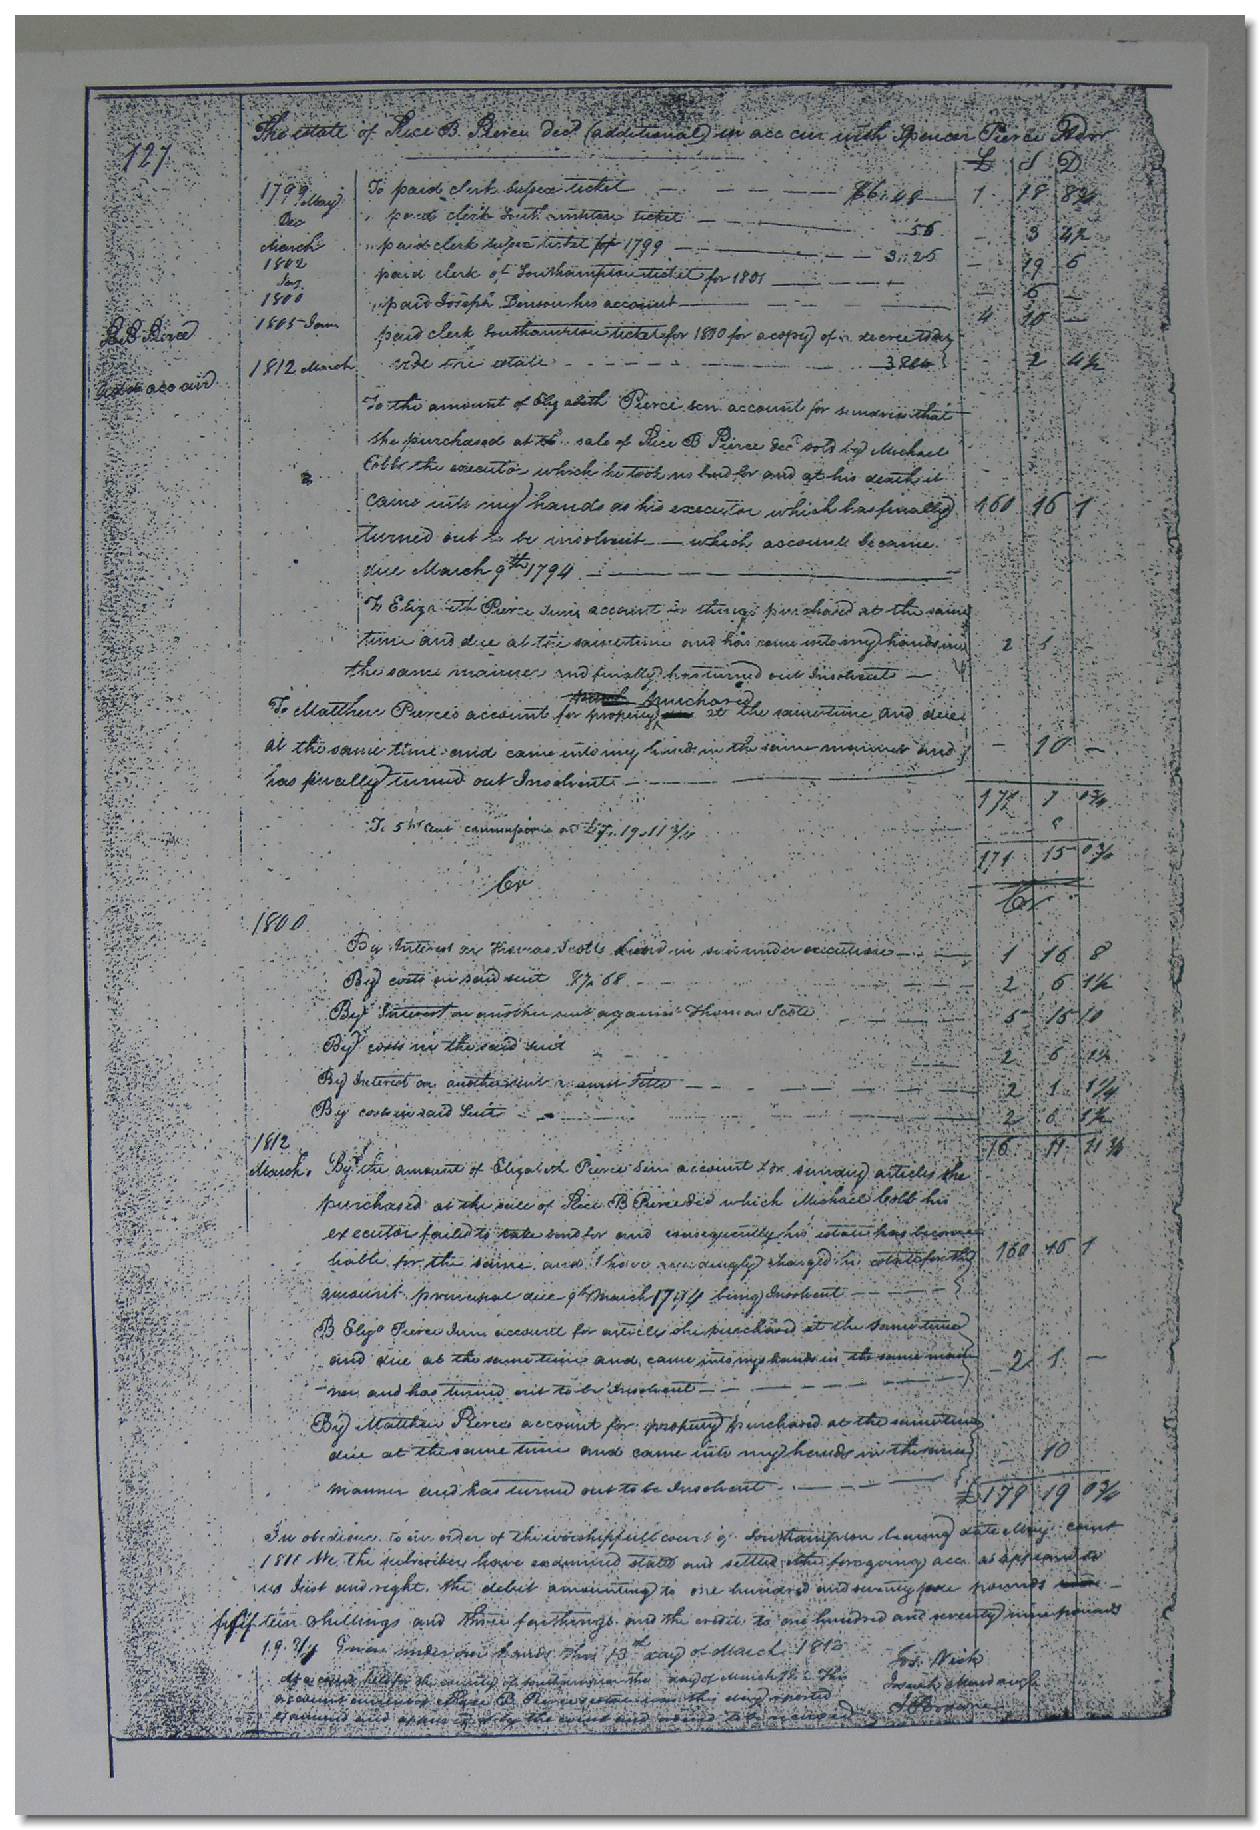 127
The estate of Rice B. Pierce decd (additional) in acc cur with Spencer Pierce Admr
£ S D
1799 May To paid clerk Sussex ticket $6.48 1 18 8¾
Dec " paid clerk South ticket 56 - 3 4½
March " paid clerk Sussex ticket for 1799 3.25 - 19 6
1802 Jany paid clerk of Southampton ticket for 1801 - 6 -
1800 " paid Joseph Denson his account 4 10 -
1805 paid clerk Southampton ticket for 1800 for a copy of a decree to
R B Pierce
1812 March the estate - 2 4½
To the amount of Elizabeth Pierce sen account for sundries that
she purchased at the sale of Rice B Pierce decd sold by Michael
Cobb the executor which he took no bond for and at his death it
came into my hands as his executor which has finally 160 16 1
turned out to be insolvent which account became
due March 9th 1794
To Elizabeth Pierce Junr account for things purchased at the same
time and due at the same time and has come into my hands in 2 1 -
the same manner and finally has turned out Insolvent
purchased
To Matthew Pierce's account for property at the same time and due
at the same time and came into my hands in the same manner and - 10 -
has finally turned out Insolvent
17 7 0¾
To 5 pr Cent on £7.19.11¾
171 15 0¾
Cr Cr
1800
By Interest on Thomas Scotts bond in suit under execution 1 16 8
By costs on said suit $7.68 2 6 1½
By Interest on another suit against Thomas Scott 5 15 10
By costs in the said suit 2 6 1½
By Interest on another suit against 2 1 1¼
By costs in said Suit 2 6 1½
1812 16 11 11¾
March By the amount of Elizabeth Pierce Sen account for sundry articles she
purchased at the sale of Rice B Pierce decd which Michael Cobb his
executor failed to take bond for and consequently his estate has become
liable for the same and I have accordingly charged his estate for the 160 16 1
amount principal due 9th March 1794 being Insolvent
By Eliza Pierce Junr account for articles she purchased at the same time
and due at the same time and came into my hands in the same man 2 1 -
ner and has turned out to be Insolvent
By Matthew Pierces account for property purchased at the same time
due at the same time and came into my hands in the same - 10
manner and has turned out to be Insolvent £179 19 0¾
In obedience to an order of the worshipfull court of Southampton bearing date May court
1811 We the subscribers have examined stated and settled the foregoing acc as appeared to
us Just and right. the debit amounting to one hundred and seventy pounds
fifteen shillings and three farthings and the credit to one hundred and seventy nine pounds
19.¾ Given under our hands this 13th day of March 1812
Jos. Vick
At a court held for the county of Southampton the day of March 1812 This
account current of Rice B Pierces estate was this day reported
examined and approved of by the court and ordered to be recorded